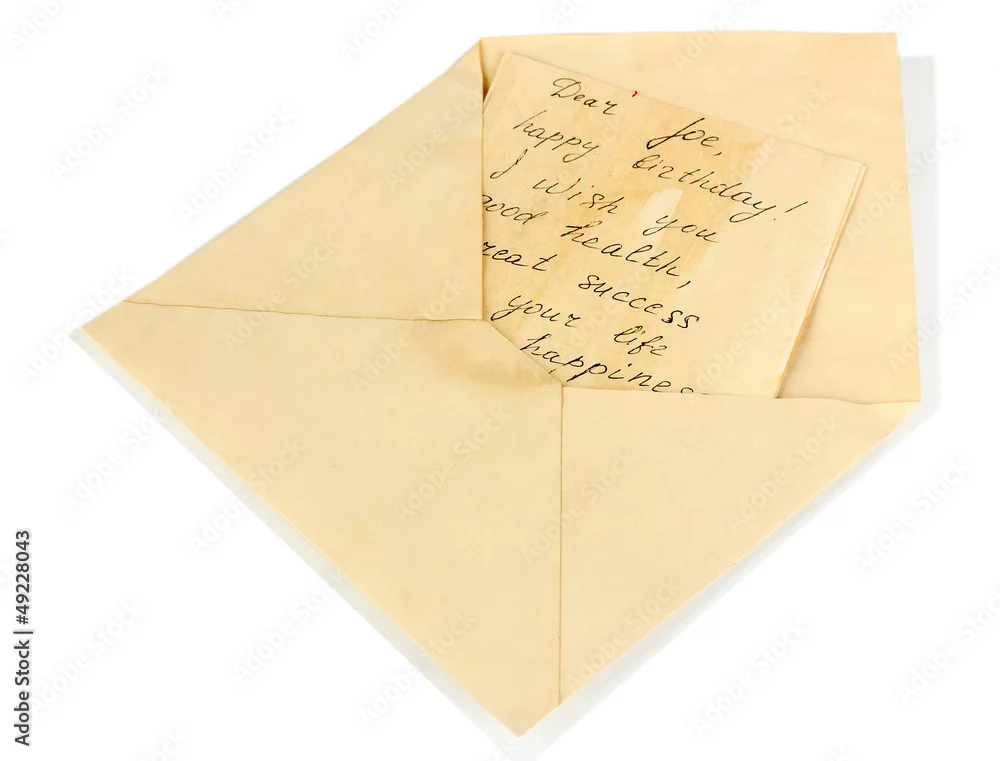 Dear Joe,
happy birthday!
I wish you
good health,
great success
your life
happines
Adobe Stock | #49228043